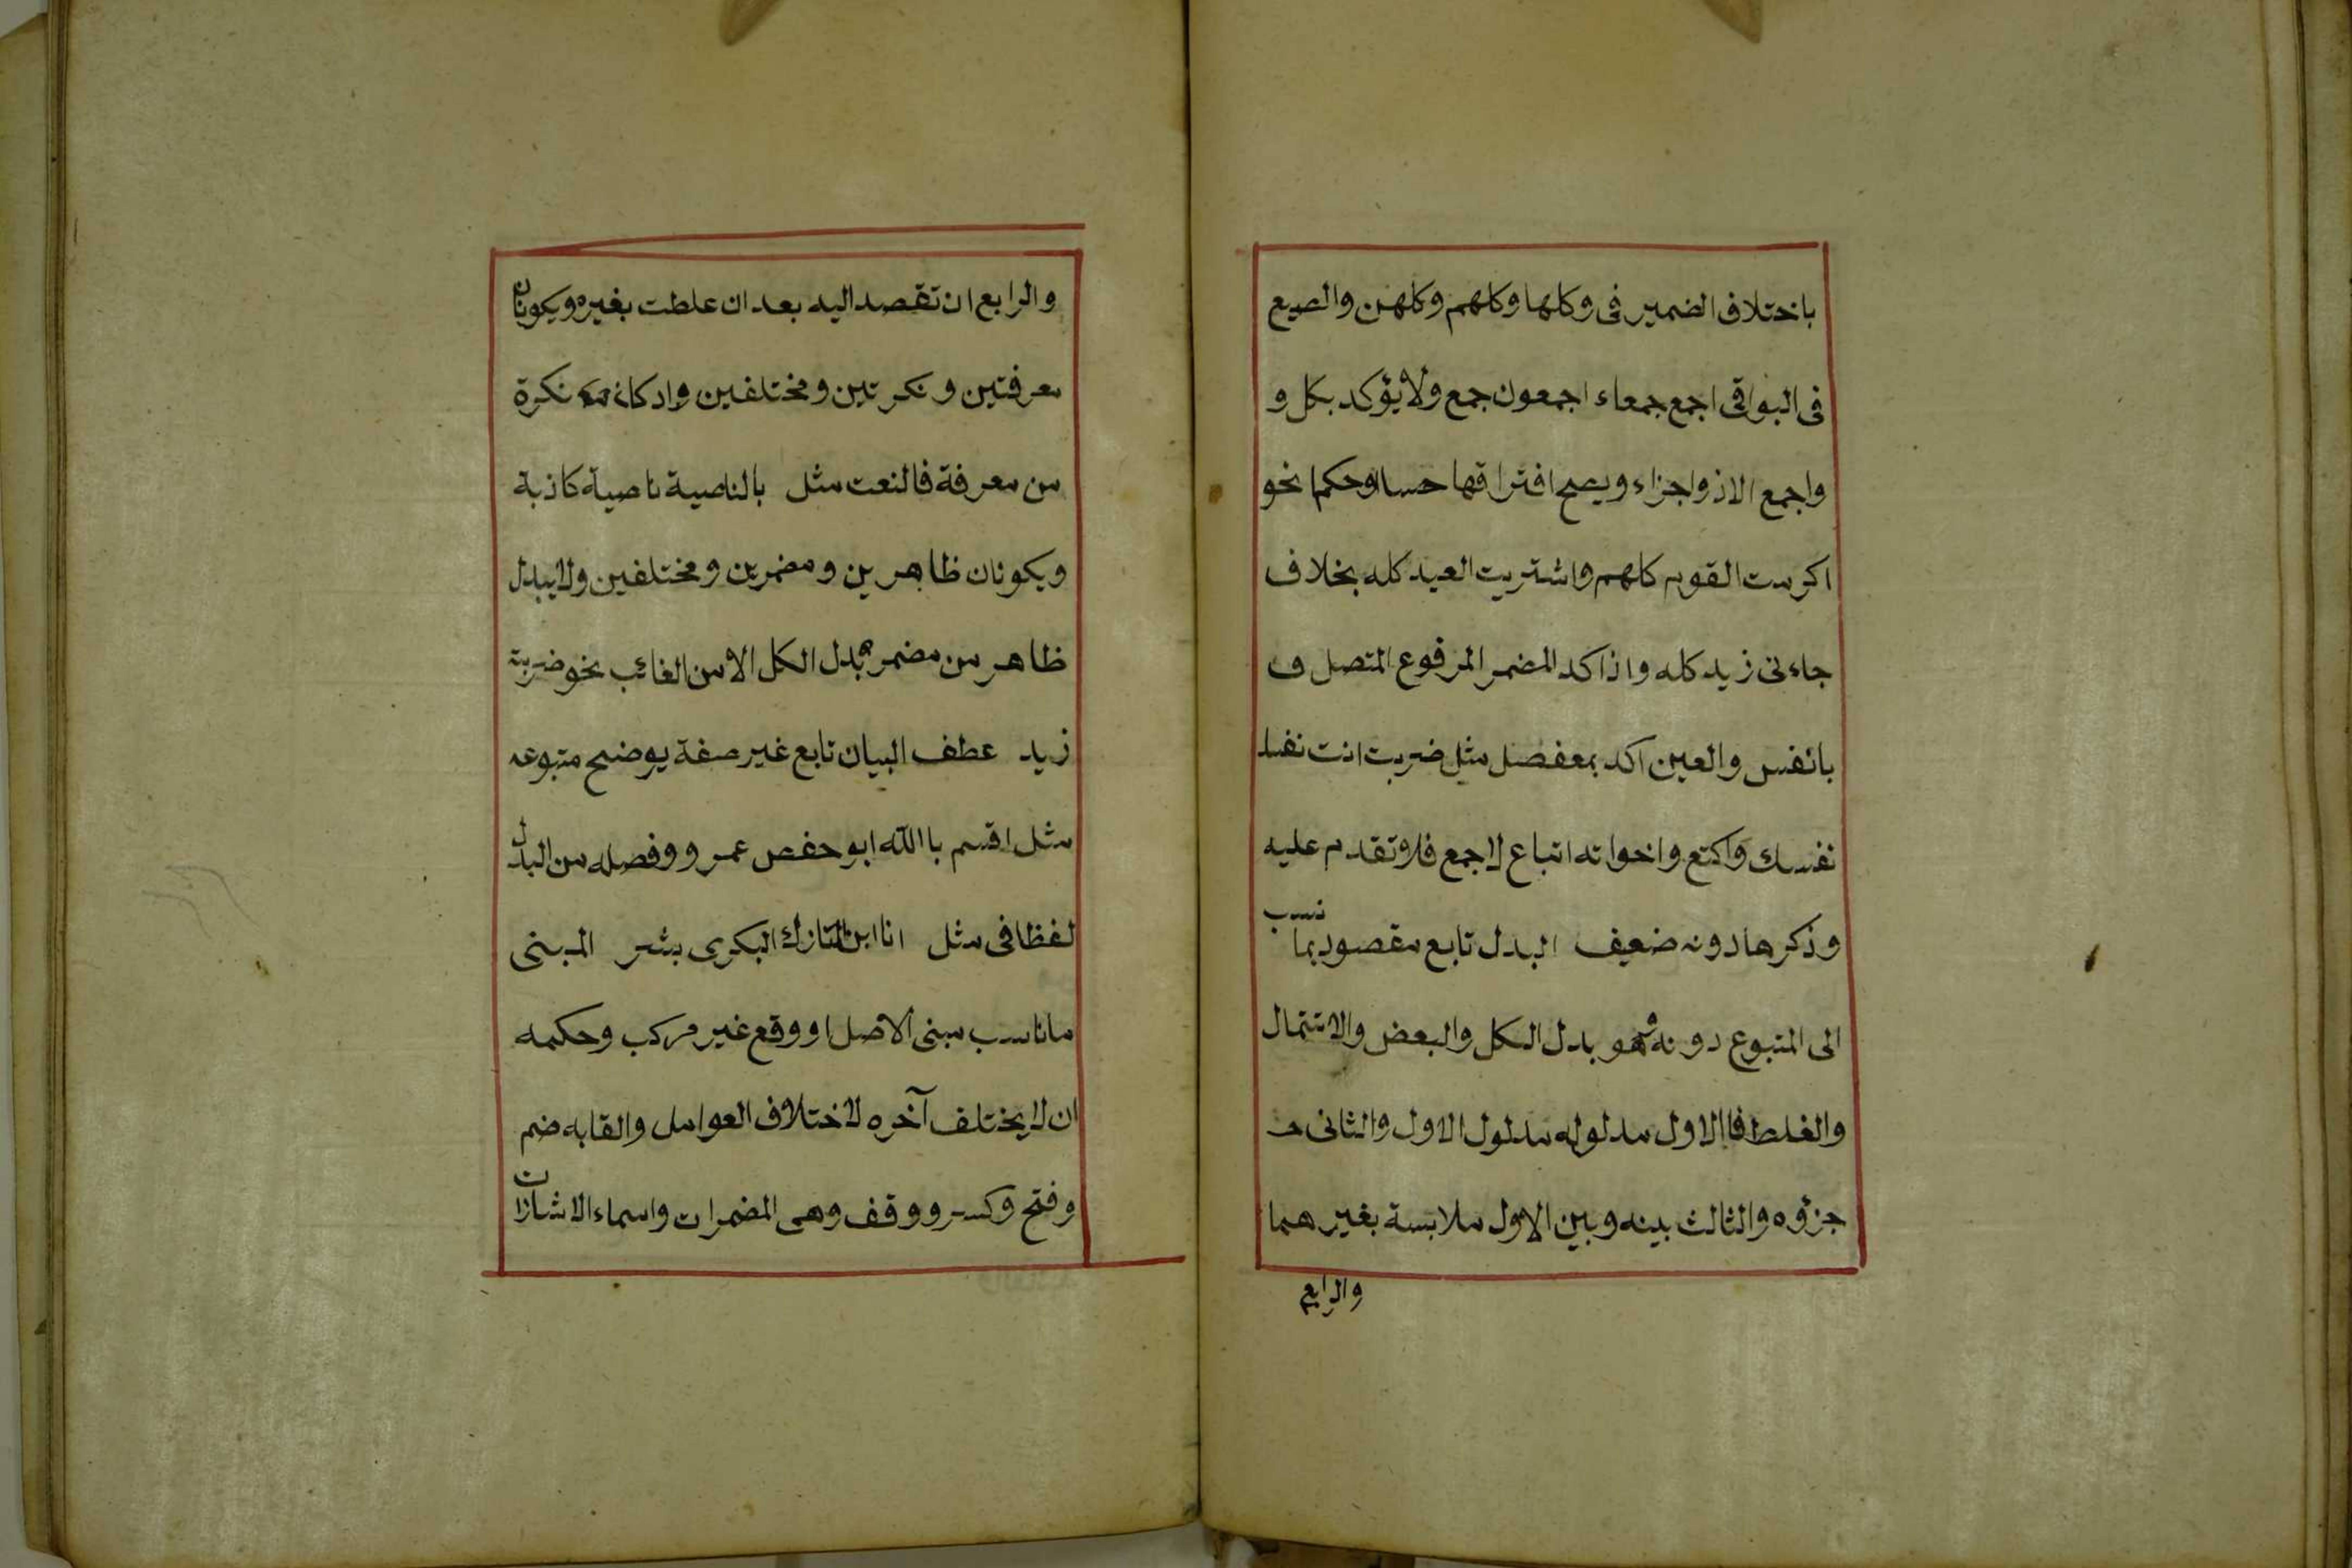 باختلاف الضمير فى وكلها وكلهم وكلهن والصيع
فى البواقى اجمع جمعاء اجمعون جمع ولا يؤكد بكل و
واجمع الاذواجزاء ويصح افتراقها حسا اوحكما نحو
اكرمت القوم كلهم واشتريت العبد كله بخلاف
جاءنى زيد كله واذا اكد المضمر المرفوع المتصل ف
بانفس والعين اكد بمعفصل مثل ضربت انت نفسك
نفسك واكتع واخواته اتباع لاجمع فلا تقدم عليه
وذكرها دونه ضعيف البدل تابع مقصود بما نسب
الى المتبوع دونه وهو بدل الكل والبعض والاشتمال
والغلط فاالاول مدلوله مدلول الاول والثانى
جزؤه والثالث بينه وبين الاول ملابسة بغيرهما
والرابع
والرابع ان تقصد اليه بعد ان علطت بغيره ويكونان
معرفتين ونكرتين ومختلفين واد كان نكرة
من معرفة فالنعت مثل بالناصية ناصية كاذبة
ويكونان ظاهرين ومضمرين ومختلفين ولا يبدل
ظاهر من مضمر بدل الكل الا من الغائب نحو ضربته
زيد عطف البيان تابع غير صفة يوضح متبوعه
مثل اقسم باالله ابو حفص عمر ووفصله من البدل
لفظا فى مثل انا ابن التارك البكرى بشر المبنى
ماناسب مبنى الاصل او وقع غير مركب وحكمه
ان لا يختلف آخره لاختلاف العوامل والقابه ضم
وفتح وكسر ووقف وهى المضمرات واسماء الاشارات